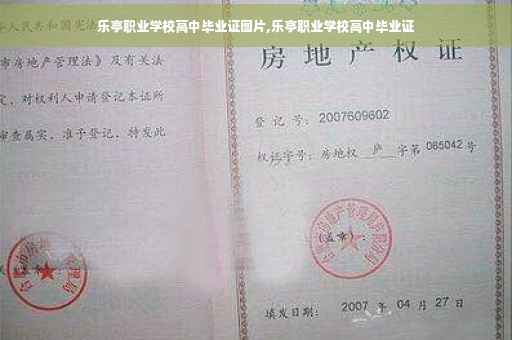 乐亭职业学校高中毕业证图片,乐亭职业学校高中毕业证
华人民共和国宪法
市房地产管理法》及有关法
定，对权利人申请登记本证所
审查属实，准予登记，特发此
房地产权证
登记号：2007609602
权证字号：房地权 庐 字第 065042 号
(盖章)：
填发日期： 2007 年 04 月 27 日